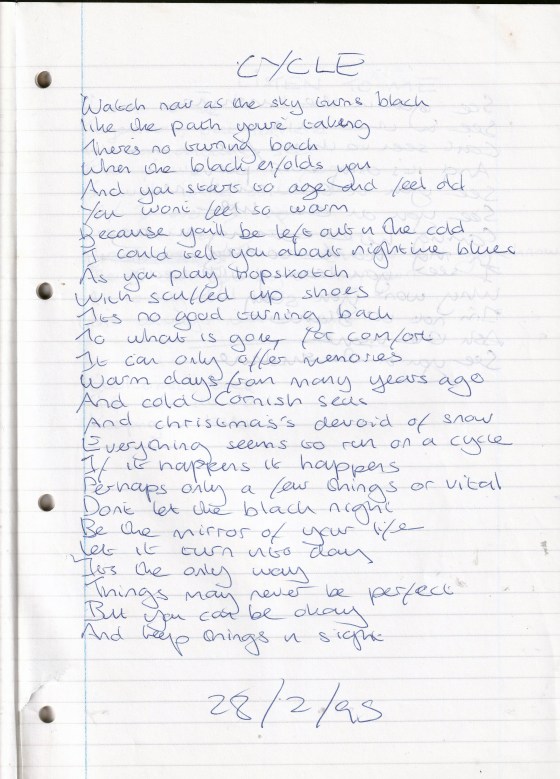 CYCLE
Watch now as the sky turns black
like the path you're taking
There's no turning back
When the black enfolds you
And you start to age and feel old
You wont feel so warm
Because you'll be left out in the cold
I could tell you about nightime blues
As you play hopskotch
With scuffed up shoes
Its no good turning back
To what is gone, for comfort
It can only offer memories
Warm days from many years ago
And cold Cornish seas
And christmas's devoid of snow
Everything seems to run on a cycle
If it happens it happens
Perhaps only a few things or vital
Dont let the black night
Be the mirror of your life
Let it turn into day
Its the only way
Things may never be perfect
But you can be okay
And keep things in sight
28/2/95